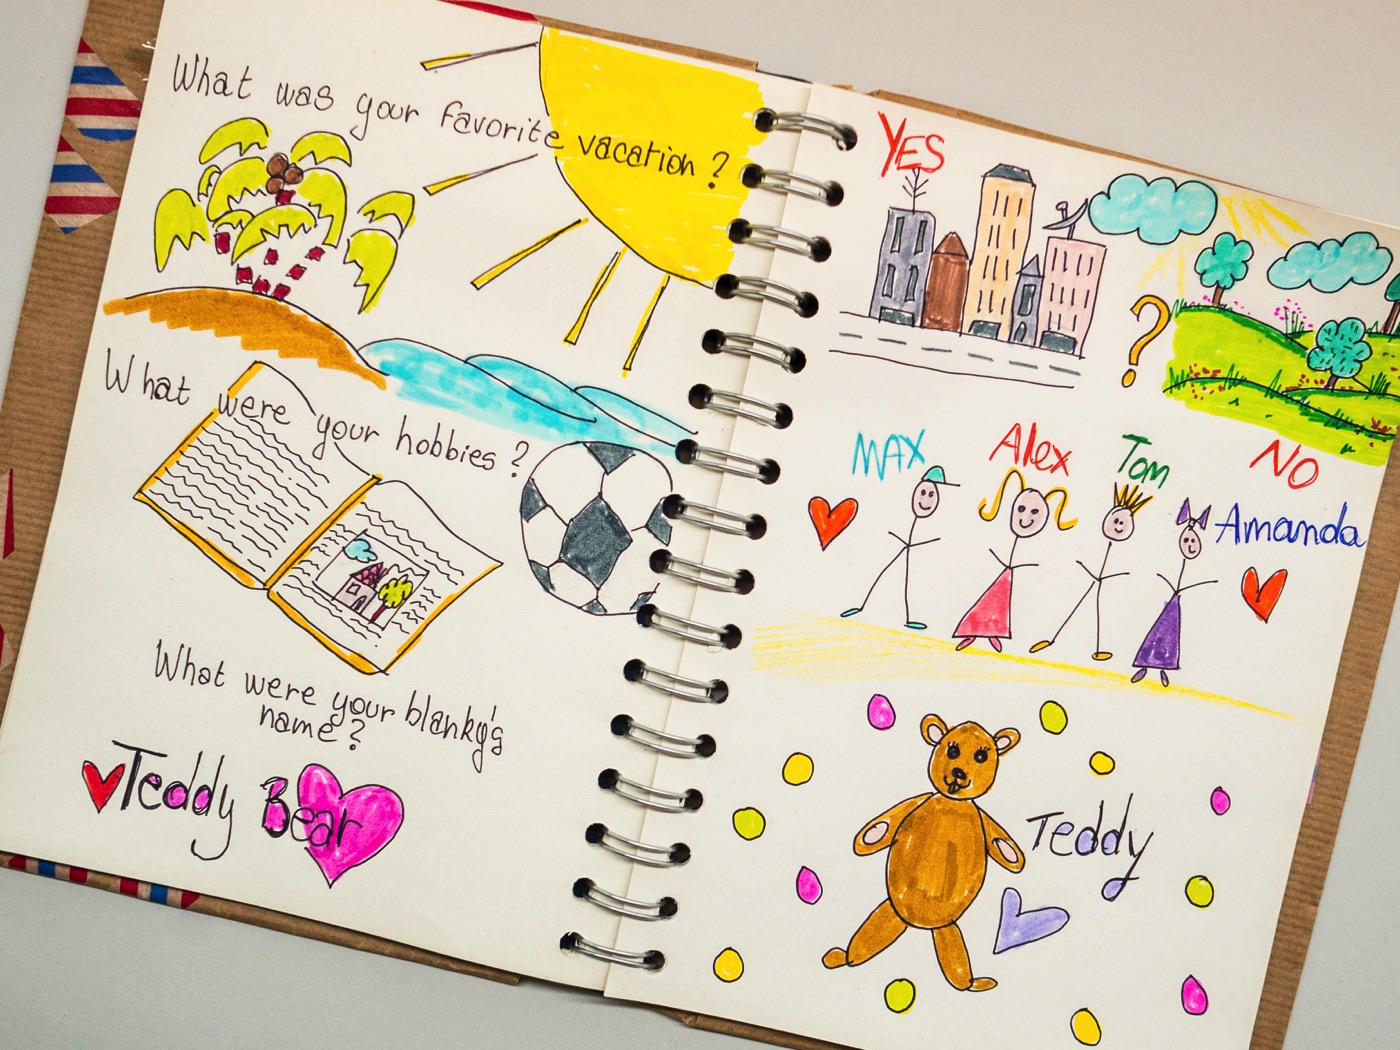 What was your favorite vacation ?
What were your hobbies ?
What were your blanky's
name ?
Teddy Bear
YES
?
NO
MAX Alex Tom Amanda
Teddy